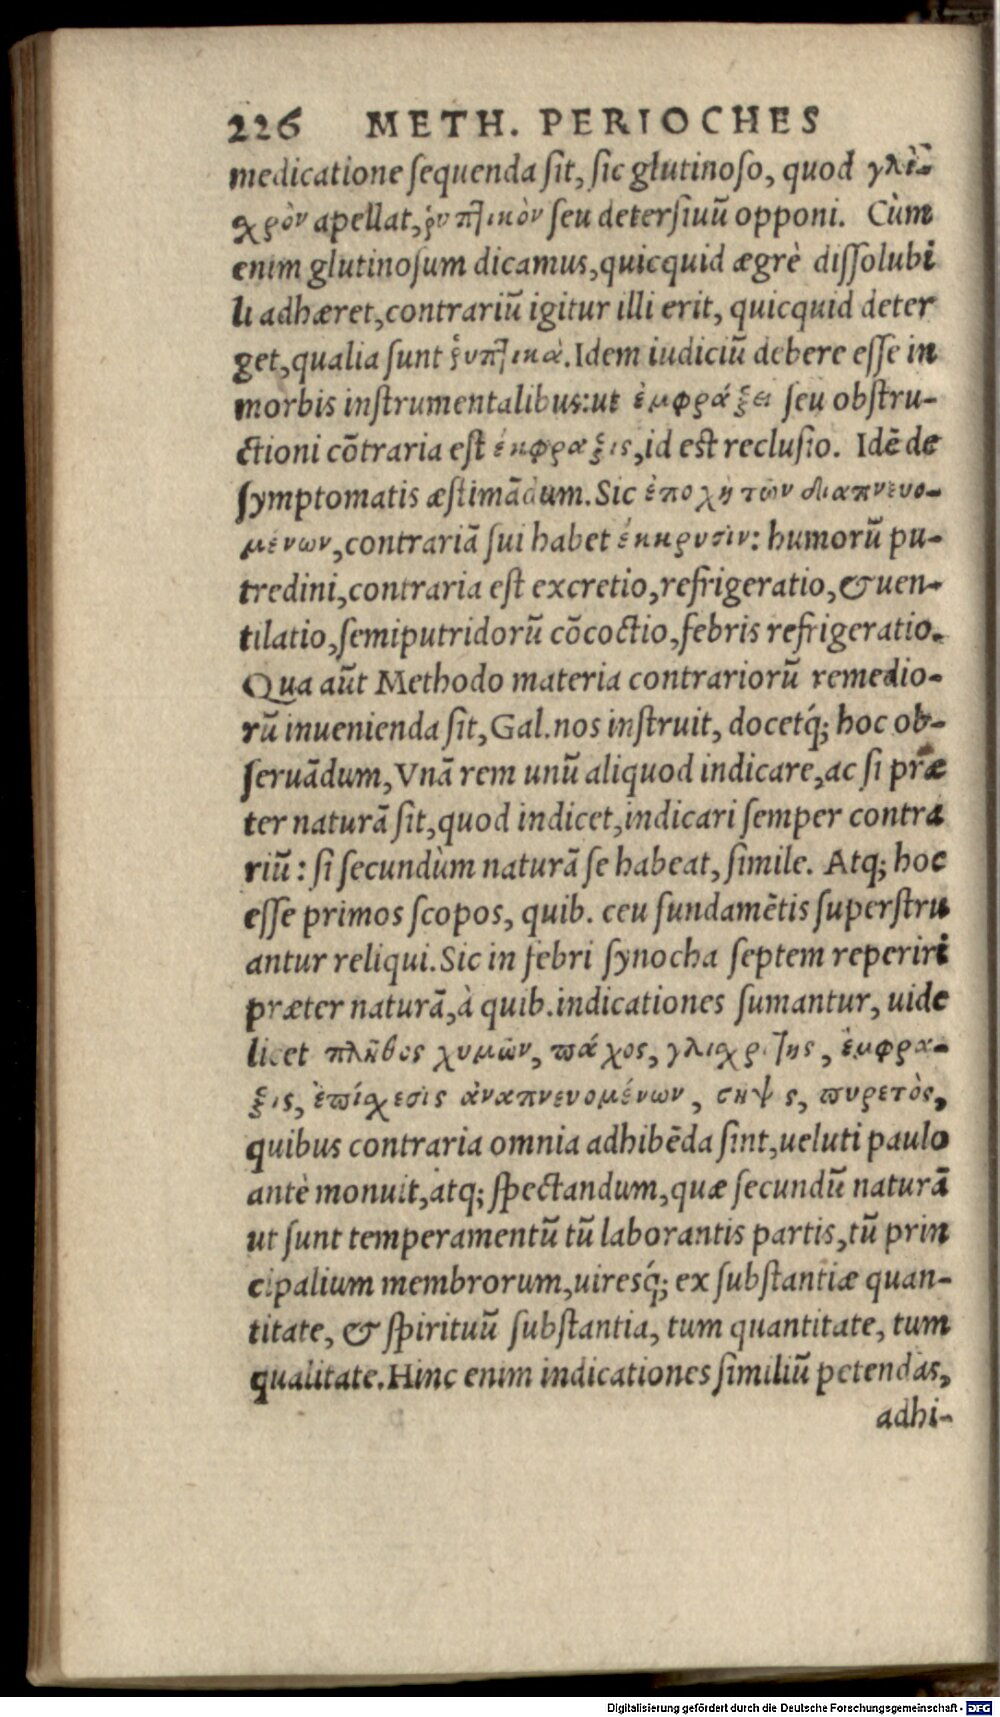 226 METH. PERIOCHES
medicatione ſequenda ſit, ſic glutinoſo, quod γλί-
χρὸν apellat, ῥυπτικὸν ſeu deterſiuũ opponi. Cùm
enim glutinoſum dicamus, quicquid ægrè diſſolubi
li adhæret, contrariũ igitur illi erit, quicquid deter
get, qualia ſunt ῥυπτικὰ. Idem iudiciũ debere eſſe in
morbis inſtrumentalibus: ut ἐμφράξει ſeu obſtru-
ctioni cõtraria eſt ἔκφραξις, id est recluſio. Idẽ de
ſymptomatis æſtimãdum. Sic ἐποχὴ τῶν διαπνευο-
μένων, contrariã ſui habet ἔκκρυσιν: humorũ pu-
tredini, contraria est excretio, refrigeratio, & uen-
tilatio, ſemiputridorũ cõcoctio, febris refrigeratio.
Qua aũt Methodo materia contrariorũ remedio-
rũ inuenienda ſit, Gal. nos inſtruit, docetq́; hoc ob-
ſeruãdum, Vnã rem unũ aliquod indicare, ac ſi præ
ter naturã ſit, quod indicet, indicari ſemper contra
riũ: ſi ſecundùm naturã ſe habeat, ſimile. Atq; hoc
eſſe primos ſcopos, quib. ceu fundamẽtis ſuperſtru
antur reliqui. Sic in febri ſynocha ſeptem reperiri
præter naturã, à quib. indicationes ſumantur, uide
licet πλῆθος χυμῶν, πάχος, γλισχρότης, ἔμφρα-
ξις, ἐπίσχεσις ἀναπνευομένων, σῆψις, πυρετὸς,
quibus contraria omnia adhibẽda ſint, ueluti paulo
antè monuit, atq; ſpectandum, quæ ſecundũ naturã
ut ſunt temperamentũ tũ laborantis partis, tũ prin
cipalium membrorum, uiresq́; ex ſubſtantiæ quan-
titate, & ſpirituũ ſubſtantia, tum quantitate, tum
qualitate. Hinc enim indicationes ſimiliũ petendas,
adhi-
Digitalisierung gefördert durch die Deutsche Forschungsgemeinschaft - DFG